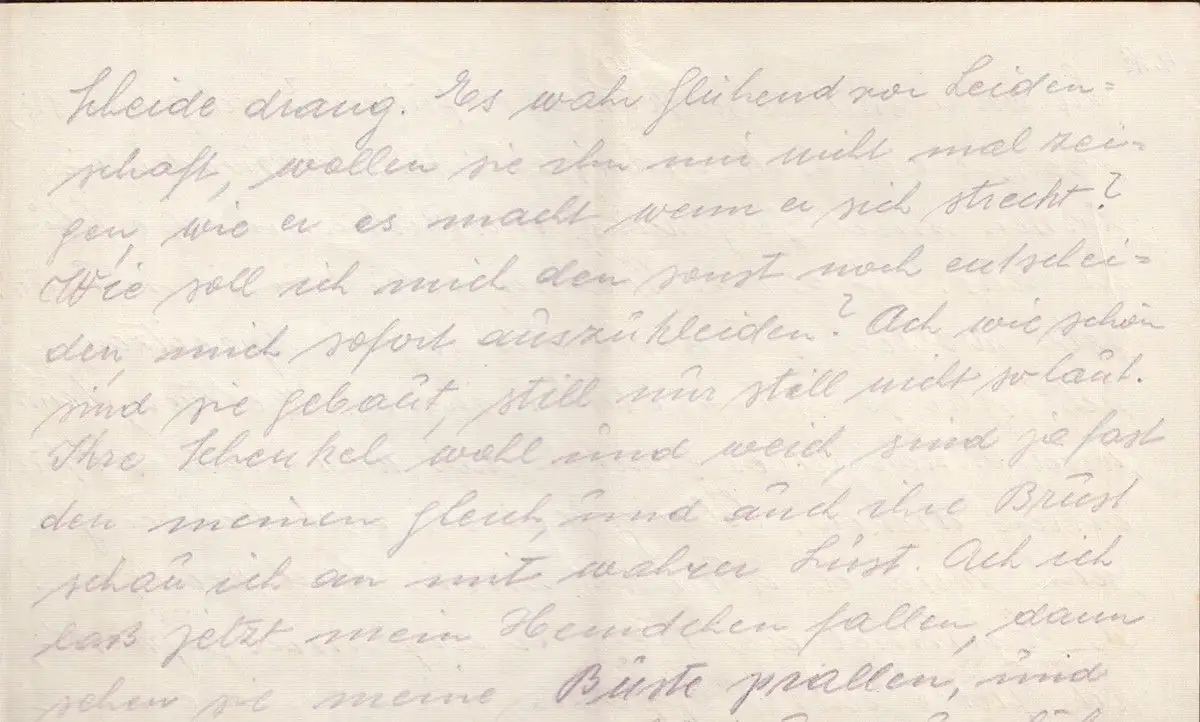 Scheide drang. Es wahr glühend vor Leiden=
schaft, wollen sie ihn mir nicht mal zei=
gen, wie er es macht wenn er sich streckt?
Wie soll ich mich den sonst noch entschei=
den, mich sofort auszukleiden? Ach wie schön
sind sie gebaut, still nur still nicht so laut.
Ihre Schenkel woll und weich, sind ja fast
den meinen gleich, und auch ihre Brust
schau ich an mit wahrer Lust. Ach ich
laß jetzt mein Hemdchen fallen, dann
sehen sie meine Büste prallen, und